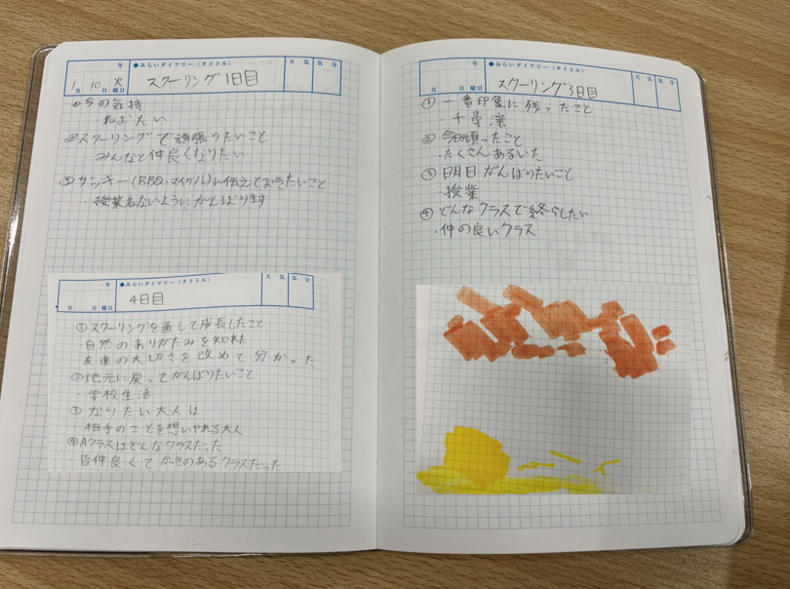 年 ◆みらいダイアリー（タイトル） 天気 気分
1月10日火曜日 スクーリング1日目
①今の気持
・ねむたい
②スクーリングで頑張りたいこと
・みんなと仲良くなりたい
③サッキー(BBQ・マイケル)に伝えておきたいこと
・授業ねないようにがんばります
◆みらいダイアリー（タイトル） 天気 気分
月 日 曜日 4日目
①スクーリングを通して成長したこと
・自然のありがたみを知れた
友達の大切さを改めて分かった
②地元に戻ってがんばりたいこと
・学校生活
③なりたい大人は
・相手のことを想いやれる大人
④Aクラスはどんなクラスだった
・皆仲良くてかっきのあるクラスだった
年 ◆みらいダイアリー（タイトル） 天気 気分
月 日 曜日 スクーリング3日目
①一番印象に残ったこと
・千尋滝
②今日頑ったこと
・たくさんあるいた
③明日がんばりたいこと
・授業
④どんなクラスで終らしたい
・仲の良いクラス